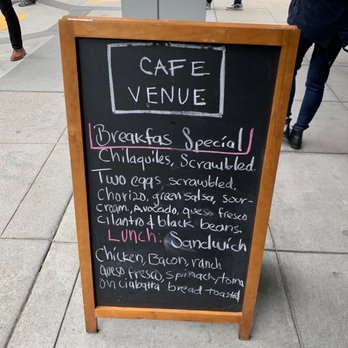 CAFE
VENUE
Breakfas Special
Chilaquiles, Scrawbled.
Two eggs, scrawbled.
Chorizo, green salsa, sour-
cream, Avocado, queso fresco
cilantro & black beans.
Lunch. Sandwich
Chicken, Bacon, ranch
Queso fresco, spinach, toma
on ciabatta bread toasted